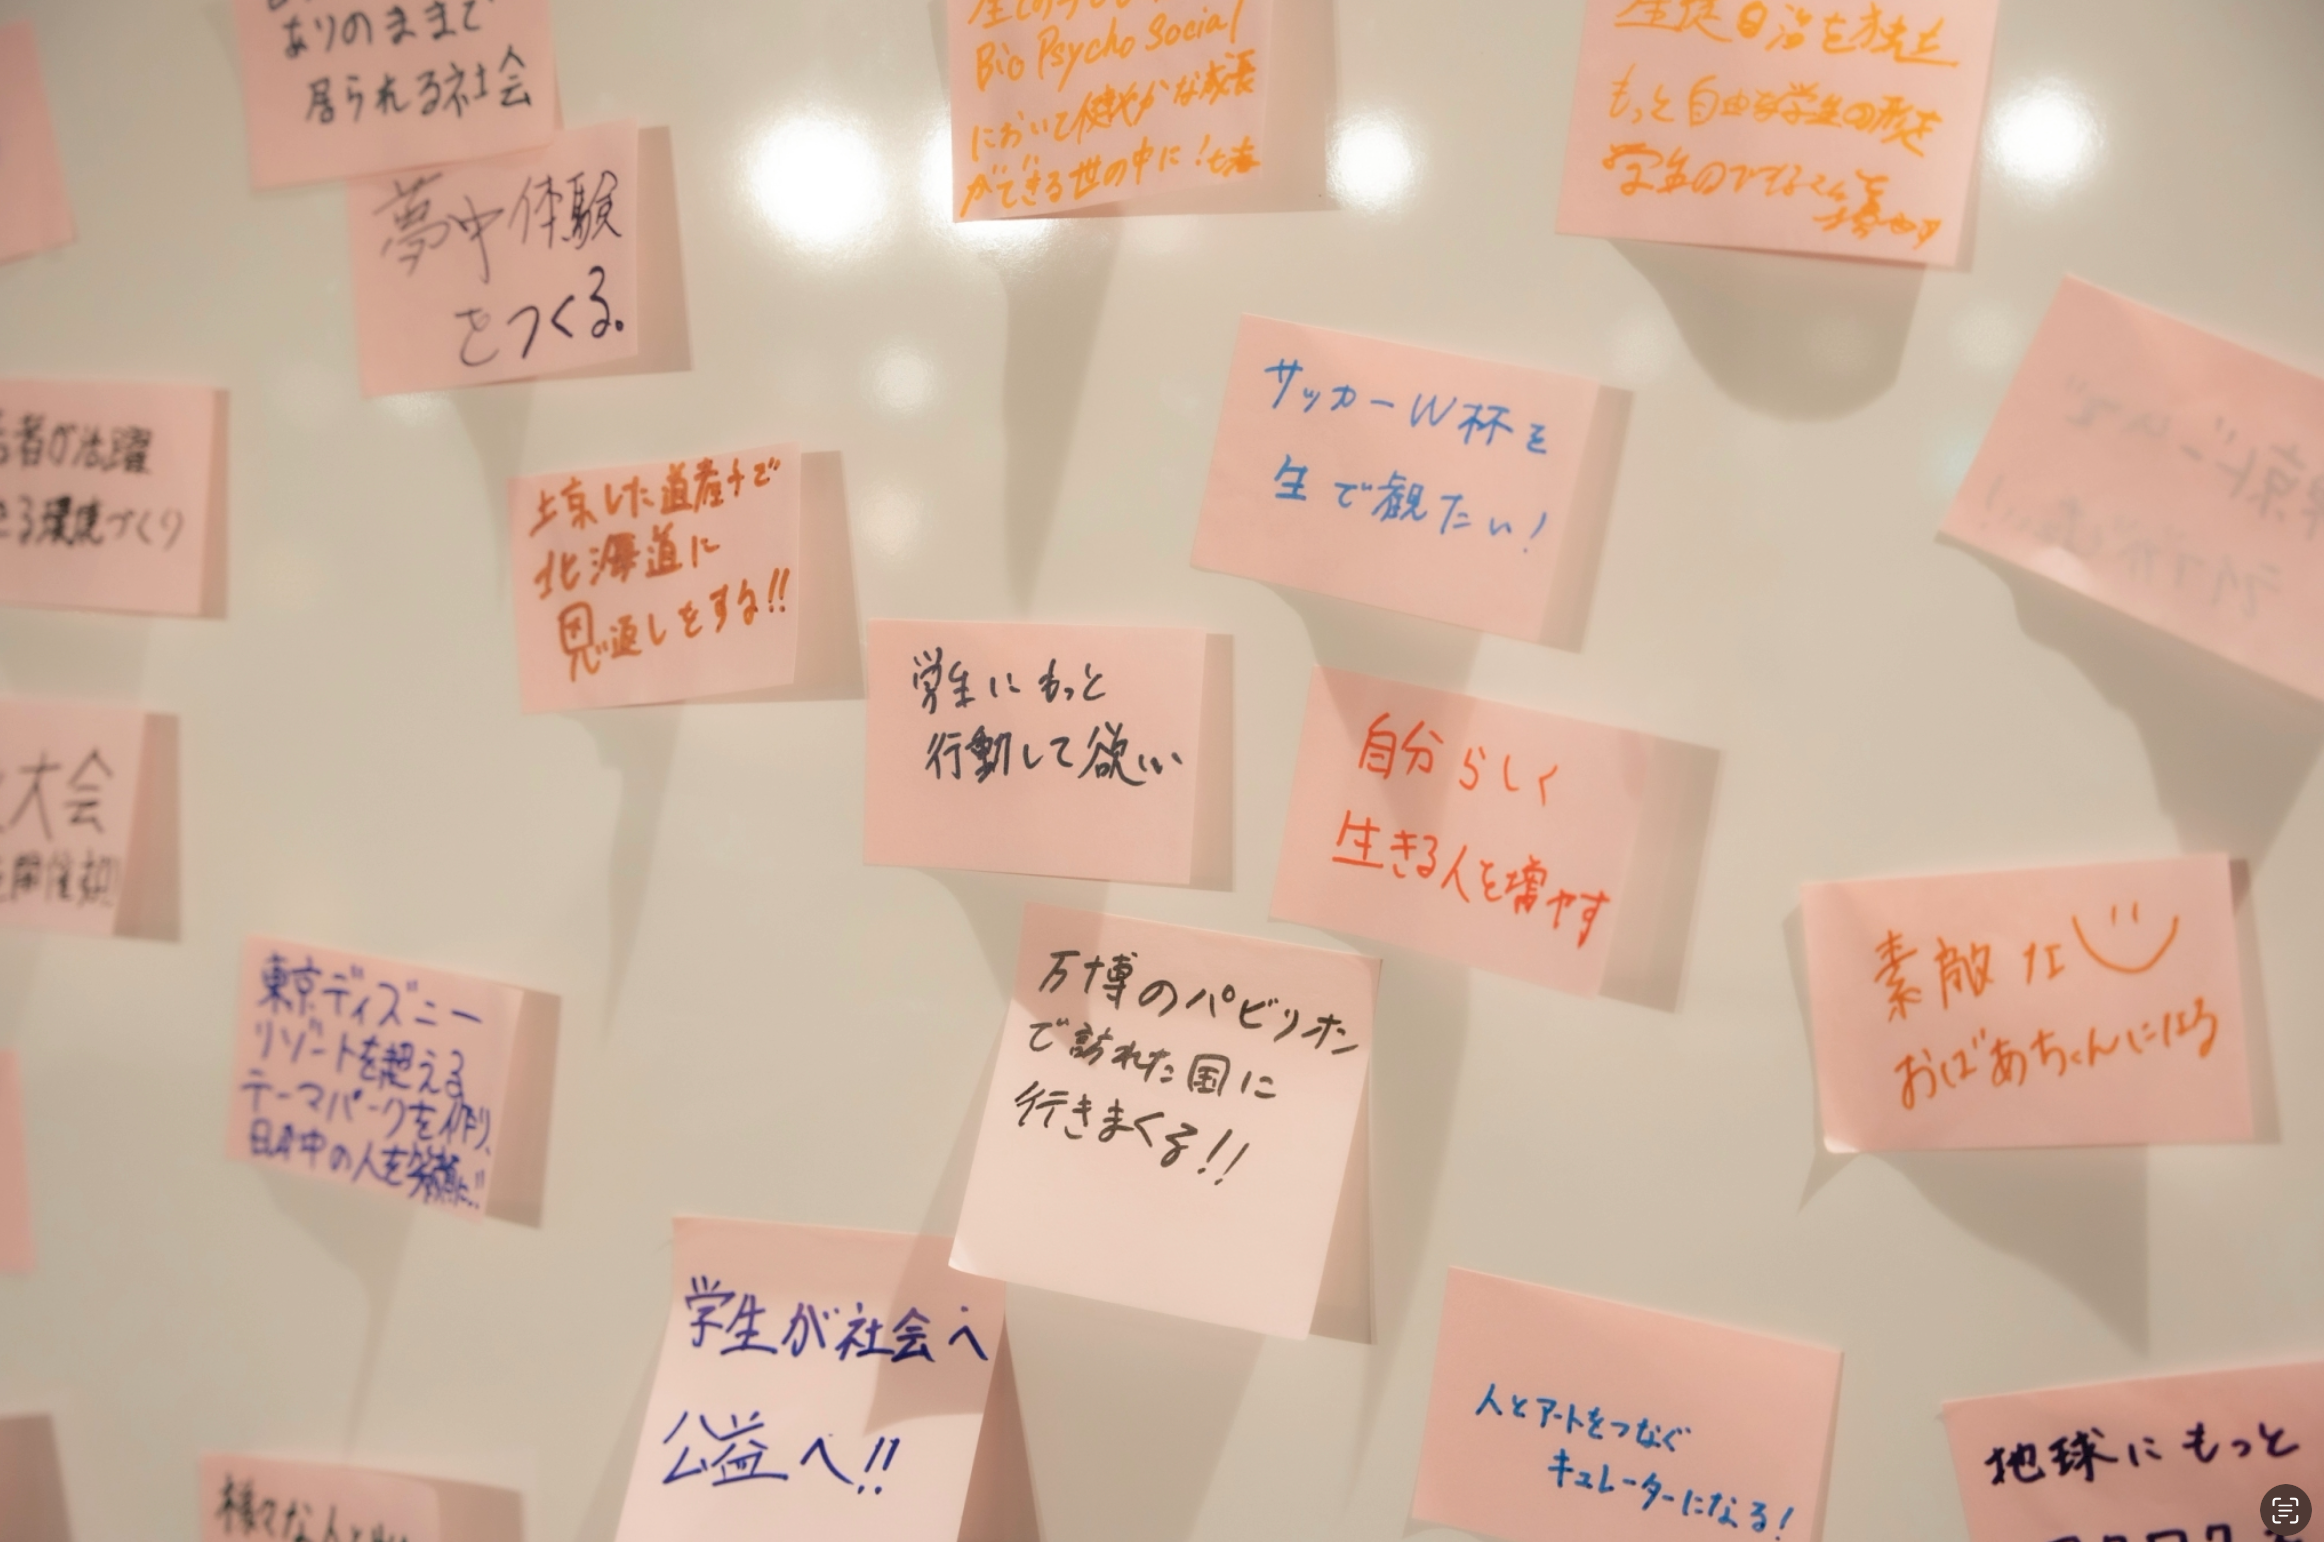 ありのままで
居られる社会
Bio Psycho Social
において健やかな成長
ができる世の中に!
もっと自由な学生の形を
夢中体験
をつくる。
サッカーW杯を
生で観たい!
の活躍
環境づくり
上京した道産子で
北海道に
恩返しをする!!
学生にもっと
行動して欲しい
自分らしく
生きる人を増やす
大会
開催
素敵な
おばあちゃんになる
万博のパビリオン
で訪れた国に
行きまくる!!
東京ディズニー
リゾートを超える
テーマパークを作り、
中の人を笑顔に!!
学生が社会へ
公益へ!!
人とアートをつなぐ
キュレーターになる!
地球にもっと
様々な人と